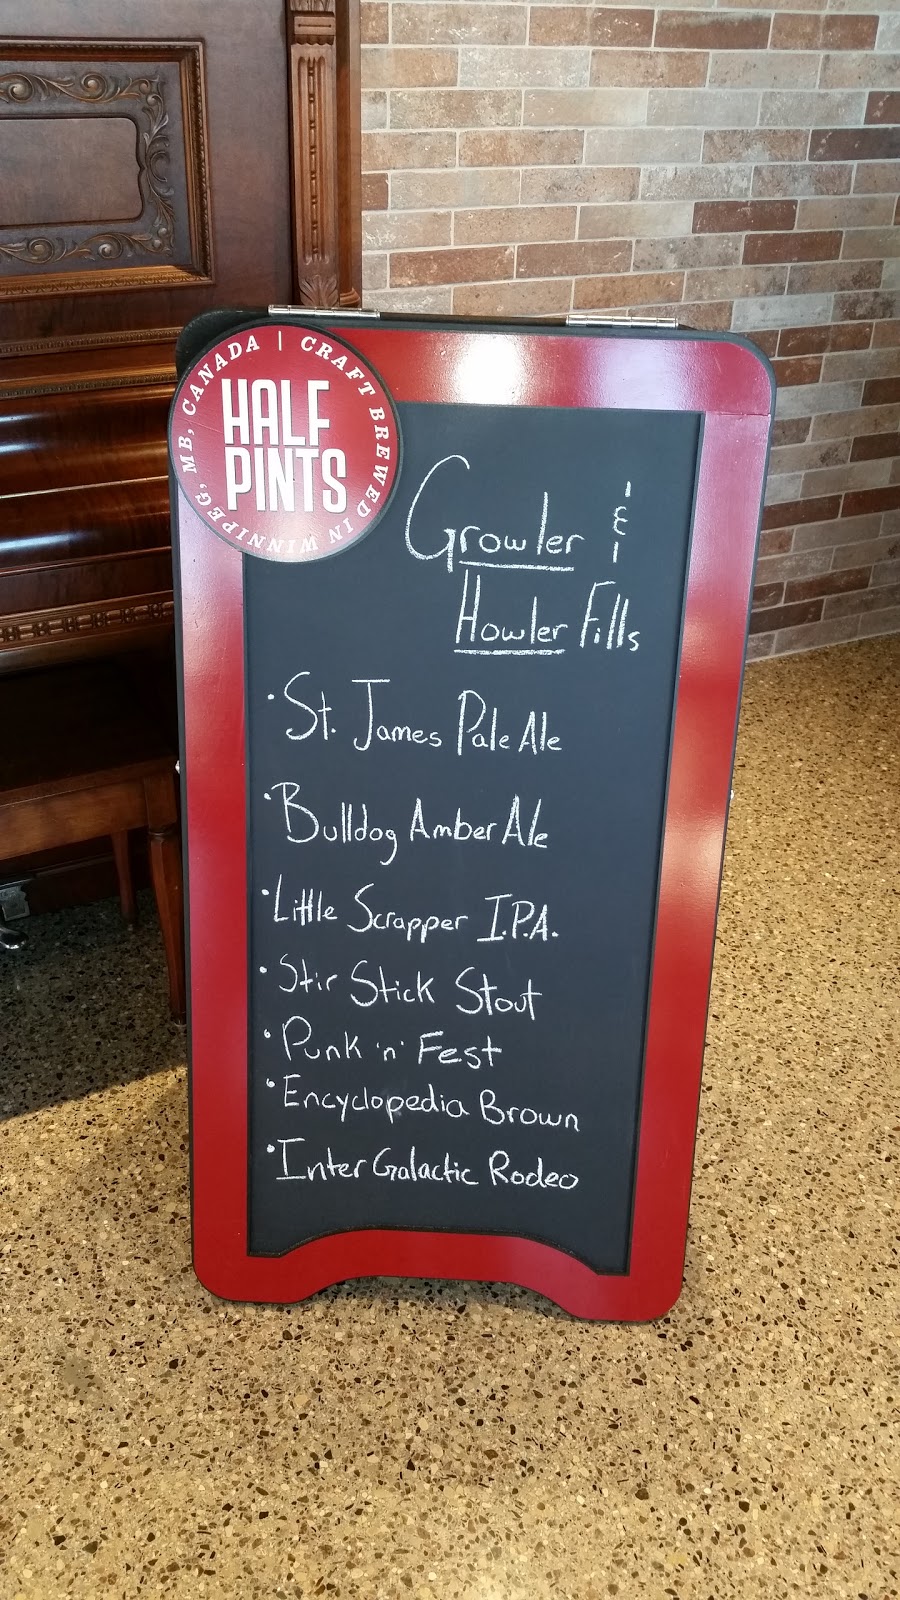 WINNIPEG, MB, CANADA | CRAFT BREWED IN
HALF
PINTS
Growler &
Howler Fills
• St. James Pale Ale
• Bulldog Amber Ale
• Little Scrapper I.P.A.
• Stir Stick Stout
• Punk 'n' Fest
• Encyclopedia Brown
• Inter Galactic Rodeo